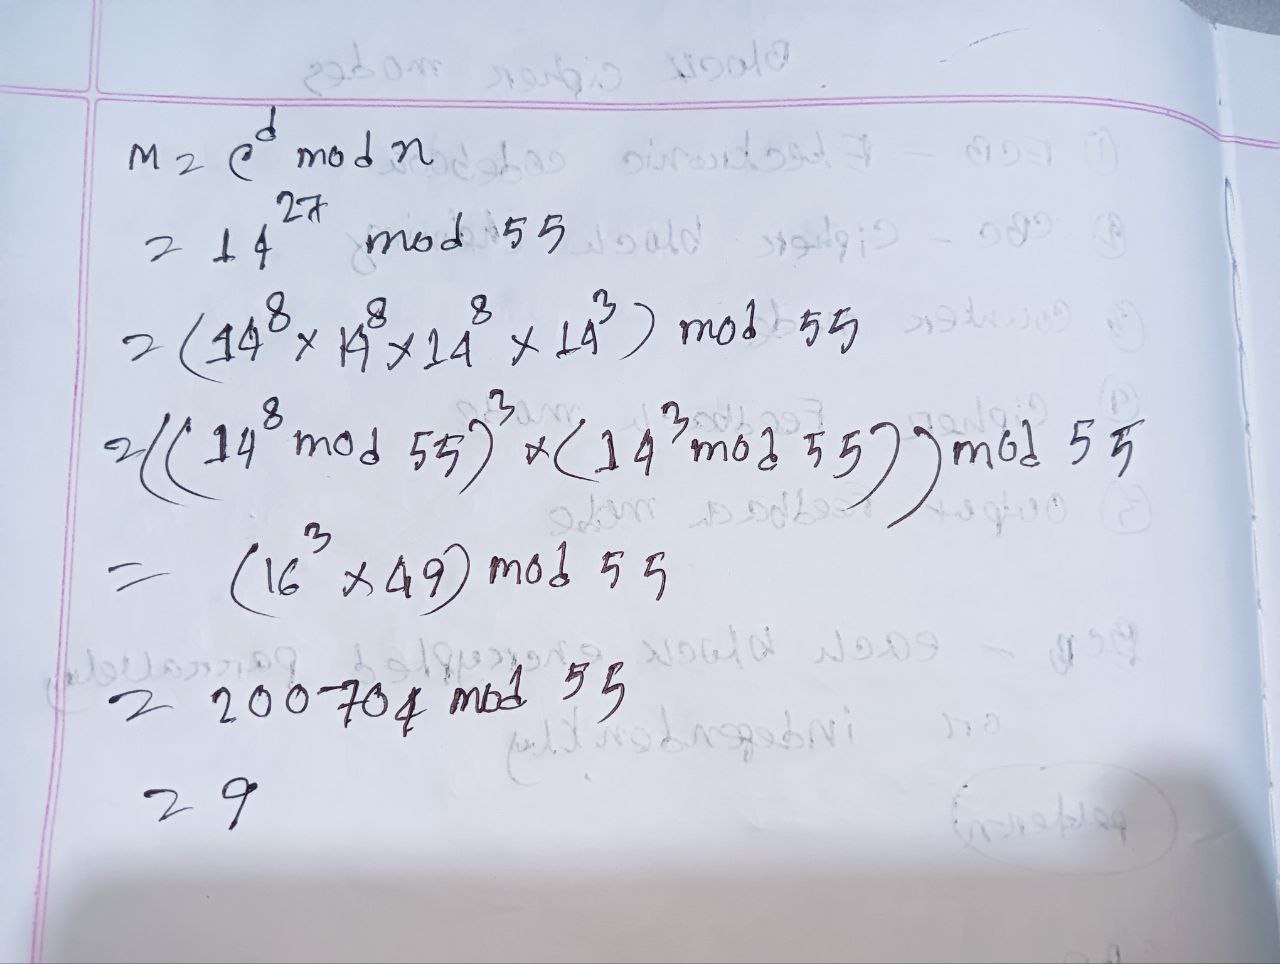 M = C^d mod n
= 14^27 mod 55
= (14^8 × 14^8 × 14^8 × 14^3) mod 55
= ((14^8 mod 55)^3 × (14^3 mod 55)) mod 55
= (16^3 × 49) mod 55
= 200704 mod 55
= 9